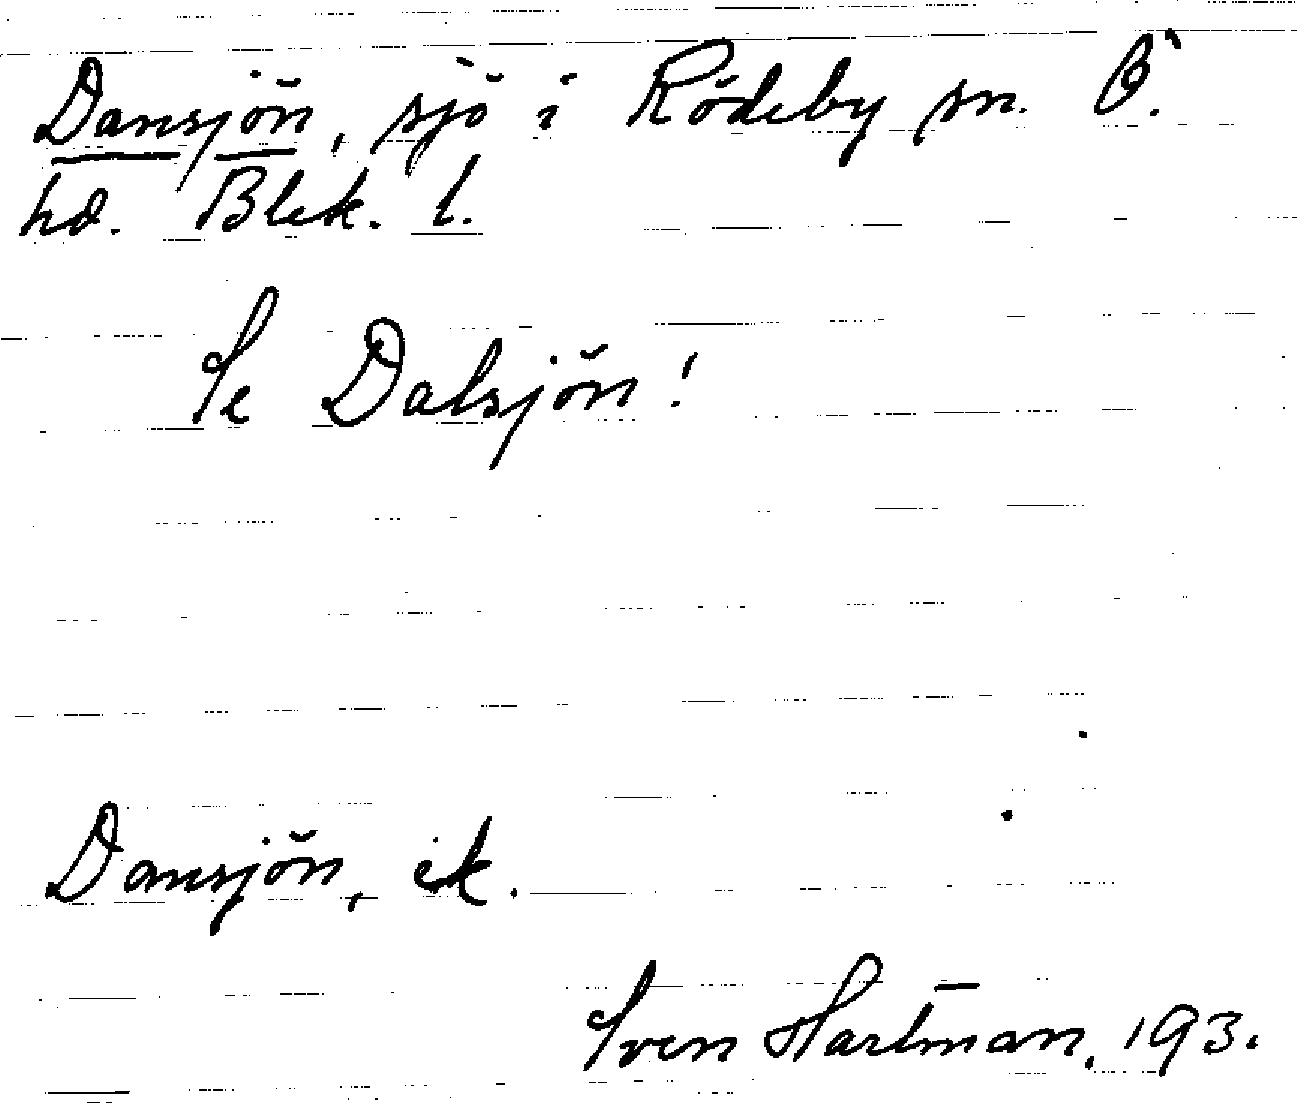 Dansjön, sjö i Rödeby sn. Ö.
hd. Blek. l.
Se Dalsjön!
Dansjön, ek.
Sven Hartman, 193.